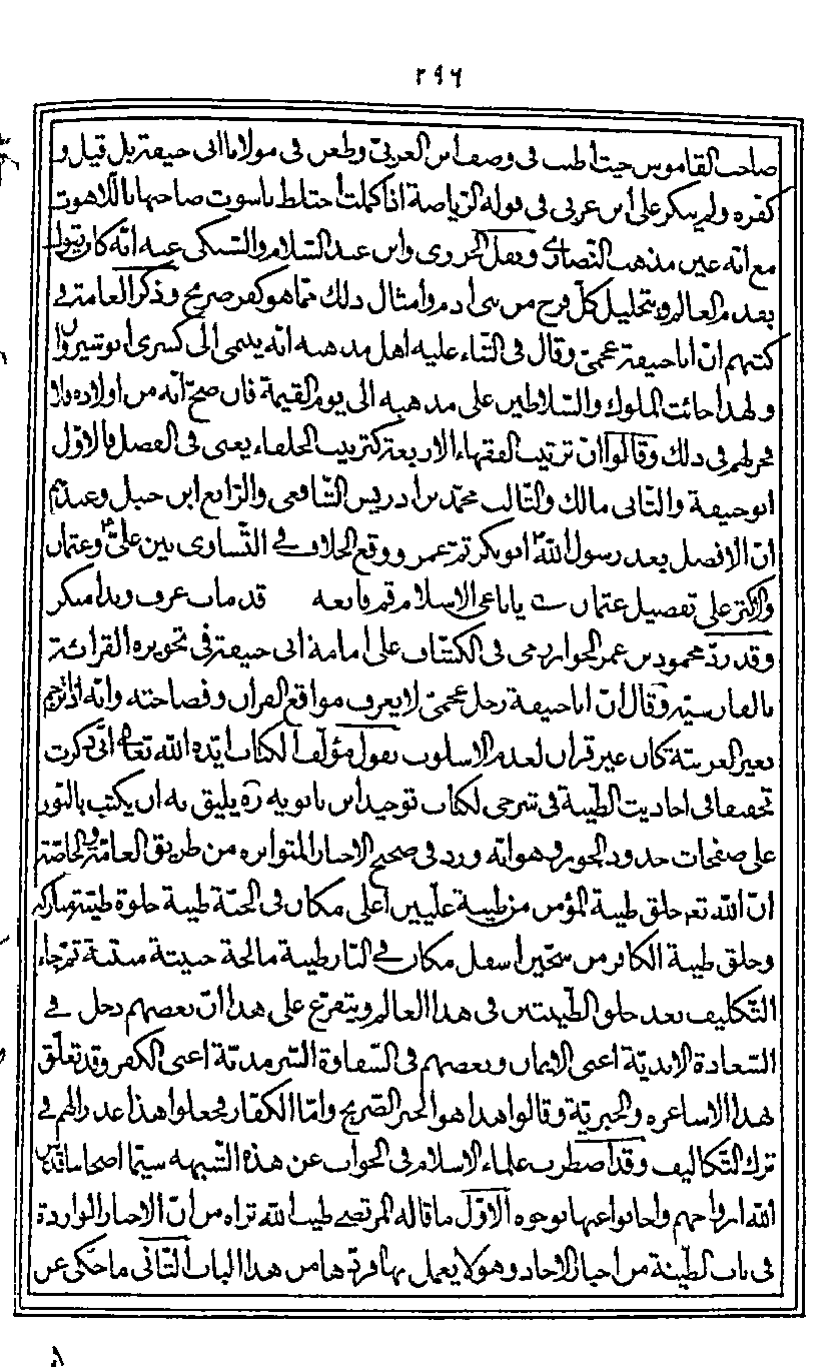 ٢٩٦
صاحب القاموس حيث أطنب في وصف ابن العربيّ وطعن في مولانا ابي حنيفة بل قيل و
كفره ولم ينكر على ابن عربي في قوله الرّياضة اذا كملت أختلط ناسوت صاحبها باللّاهوت
مع انه عين مذهب النّصارى ونقل الجزري وابن عبد السّلام والسّبكي عنه انّه كان يقول
بقدم العالم وبتحليل كلّ فرج من بنى ادم وامثال ذلك ممّا هو كفر صريح وذكر العامّة في
كتبهم انّ ابا حنيفة عجميّ وقال في الثّناء عليه اهل مذهبه انّه ينتمى الى كسرى انوشيروان
ولهذا جائت الملوك والسّلاطين على مذهبه الى يوم القيمة فان صحّ انّه من اولاده فلا
فخر لهم في ذلك وقالوا انّ ترتيب الفقهاء الاربعة كترتيب الخلفاء يعنى في الفضل فالاوّل
ابو حنيفة والثّانى مالك والثّالث محمّد بن ادريس الشّافعى والرّابع ابن حنبل وعندهم
انّ الافضل بعد رسول اللّه ابو بكر ثمّ عمر ووقع الخلاف في التّساوى بين علىّ وعثمان
والاكثر على تفضيل عثمان يا ناعى الاسلام قم فانعه قد مات عرف وبدا منكر
وقد ردّ محمود بن عمر الخوارزمى في الكشّاف على امامه ابى حنيفة في تجويزه القرائة
بالفارسيّة وقال انّ ابا حنيفة رجل عجميّ لا يعرف مواقع القران وفصاحته وانّه اذا ترجم
بغير العربيّة كان غير قران لعدم الاسلوب يقول مؤلّف الكتاب ايّده اللّه تعالى انّى ذكرت
تحقيقا في احاديث الطّينة في شرحى لكتاب توحيد ابن بابويه ره يليق به ان يكتب بالنّور
على صفحات خدود الحور وهو انّه ورد في صحيح الاخبار المتواتره من طريق العامّة والخاصّة
انّ اللّه تعم خلق طينة المؤمن من طينة علّيين أعلى مكان في الجنّة طينة حلوة طيّبة مباركة
وخلق طينة الكافر من سجّين اسفل مكان في النّار طينة مالحة خبيثة منتنة ثمّ جاء
التّكليف بعد خلق الطّينتين في هذا العالم ويتفرّع على هذا انّ بعضهم دخل في
السّعادة الابديّة اعنى الايمان وبعضهم في الشّقاوة السّرمديّة اعنى الكفر وقد تعلّق
بهذا الاشاعره والجبريّة وقالوا هذا هو الجبر الصّريح وامّا الكفّار فجعلوا هذا عذرا لهم في
ترك التّكاليف وقد اضطرب علماء الاسلام في الجواب عن هذه الشّبهه سيّما اصحابنا قدّس
اللّه ارواحهم واجابوا عنها بوجوه الاوّل ما قاله المرتضى طيب اللّه ثراه من انّ الاخبار الواردة
في باب الطّينة من اخبار الاحاد وهو لا يعمل بها فردّها من هذا الباب الثّانى ما حكى عن